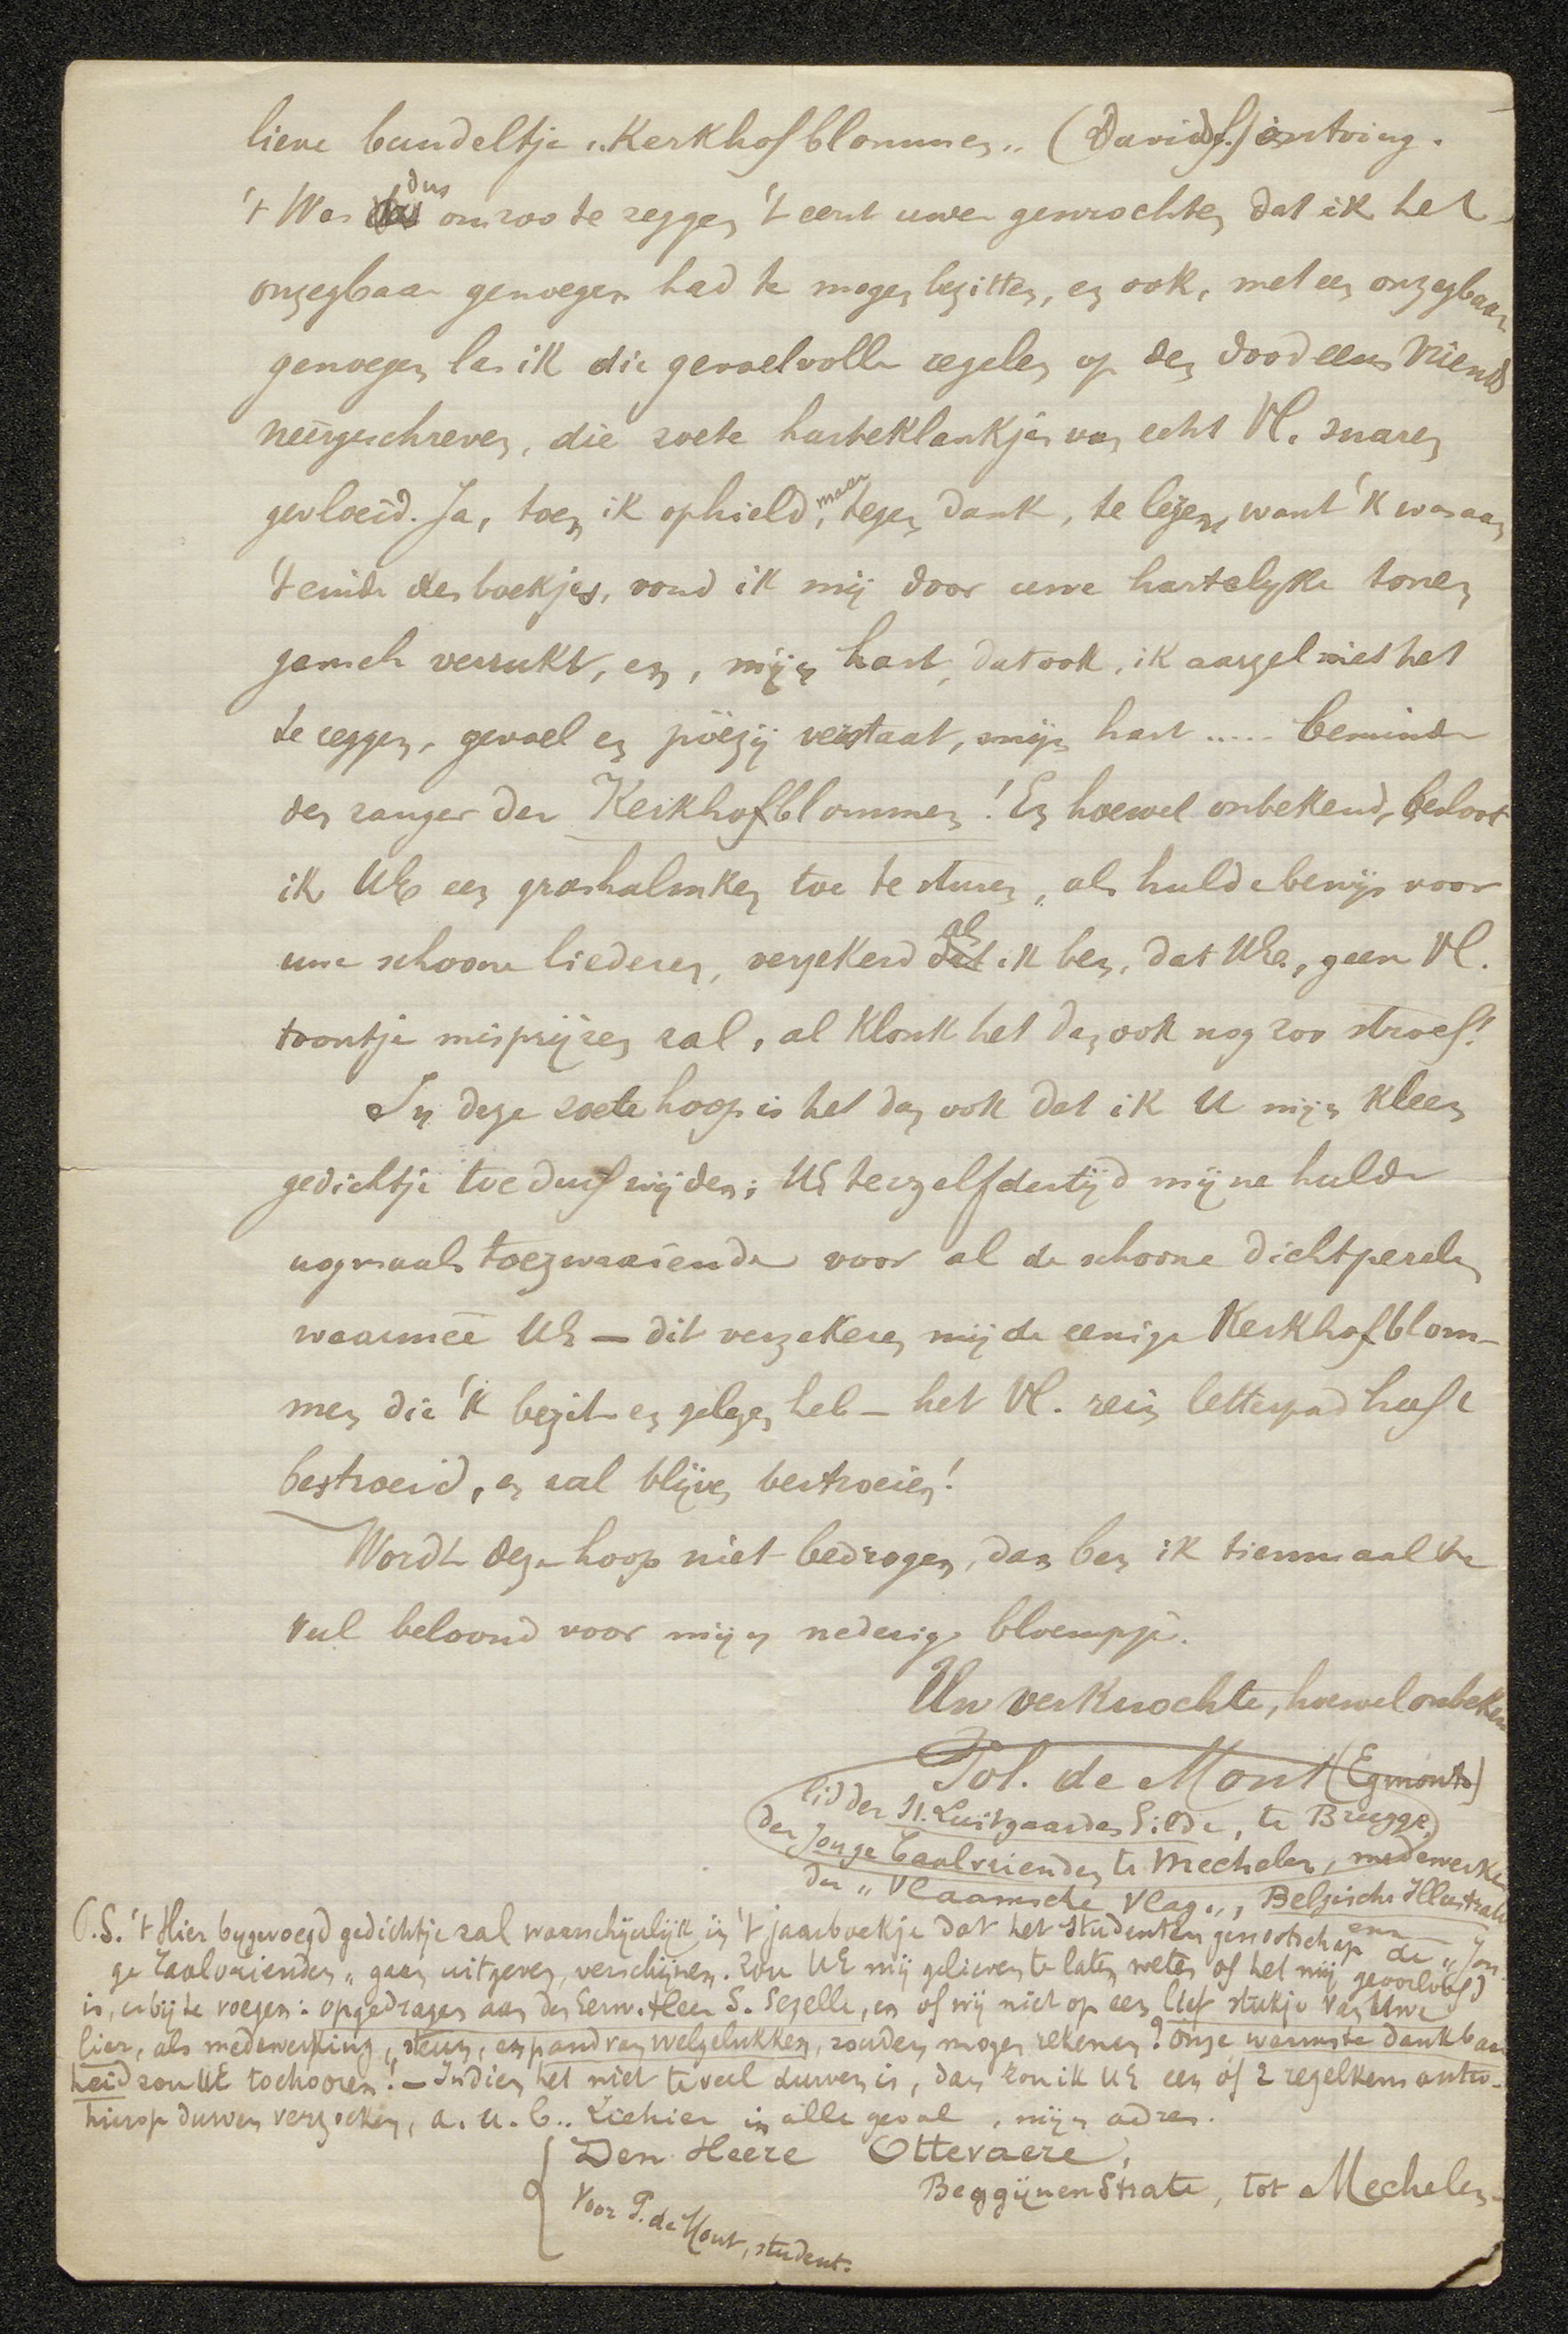 lieve bundeltje "Kerkhofblommen" (Davidsf.) ontving.
't Was dus om zoo te zeggen 't eerst uwer gewrochten dat ik het
onzegbaar genoegen had te mogen bezitten, en ook, met een onzegbaar
genoegen las ik die gevoelvolle regelen op den dood eens vriends
neêrgeschreven, die zoete harteklankjes van echt Vl. snaren
gevloeid. Ja, toen ik ophield, maar tegen dank, te lezen, want 'k was aan
't einde des boekjes, vond ik mij door uwe hartelyke tonen
gansch verrukt, en, mijn hart, dat ook, ik aarzel niet het
te zeggen, gevoel en poëzij verstaat, mijn hart ..... beminde
den zanger der Kerkhofblommen! En hoewel onbekend, besloot
ik UE een grashalmken toe te sturen, als huldebewijs voor
uwe schoone liederen, verzekerd als ik ben, dat UE., geen Vl.
toontje misprijzen zal, al klonk het dan ook nog zoo stroef!
In deze zoete hoop is het dan ook dat ik U mijn kleen
gedichtje toe durf wijden; UE terzelfdertijd mijne hulde
nogmaals toezwaaiende voor al de schoone dichtperelen
waarmeê UE — dit verzekeren mij de eenige Kerkhofblom-
men die 'k bezit en gelezen heb — het Vl. rein letterpad heeft
bestrooid, en zal blijven bestrooien!
Wordt deze hoop niet bedrogen, dan ben ik tienmaal te
veel beloond voor mijn nederige bloempje.
Uw verknochte, hoewel onbeken
Pol. de Mont (Egmonts)
lid der St. Luitgaarden Gilde, te Brugge,
der Jonge Taalvrienden te Mechelen, medewerker
der "Vlaamsche Vlag", Belgische Illustratie
P.S. 't Hier bygevoegd gedichtje zal waarschijnlijk in 't jaarboekje dat het studentengenootschap de "Jon-
ge Taalvrienden" gaan uitgeven, verschijnen. Zou UE mij gelieven te laten weten of het mij geoorloofd
is, erbij te voegen: opgedragen aan den Eerw. Heer G. Gezelle, en of wij niet op een lief stukje van Uwe
lier, als medewerking, steun, en pand van welgelukken, zouden mogen rekenen? Onze warmste dankbaar
heid zou UE toehooren! — Indien het niet te veel durven is, dan zou ik UE een of 2 regelkens antw.
hierop durven verzoeken, a. u. b.. Ziehier in alle geval, mijn adres.
Den Heere Ottevaere,
Beggijnenstrate, tot Mechelen.
Voor P. de Mont, student.